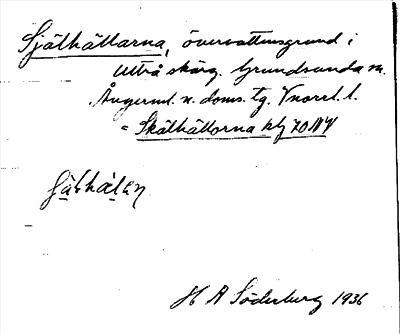 Själhällarna, övervattensgrund i
Ultrå skärg. Grundsunda sn.
Ångerml. n. doms. tg. Vnorrl. l.
= Skälhällorna kbl 70 NV
H A Söderberg 1936